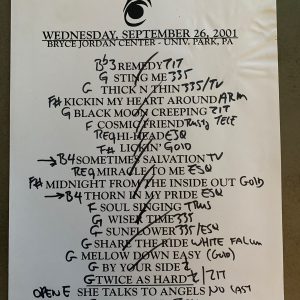 WEDNESDAY, SEPTEMBER 26, 2001
BRYCE JORDAN CENTER - UNIV. PARK, PA
Bb3 REMEDY ZIT
G STING ME 335
G THICK N THIN 335/TV
F# KICKIN MY HEART AROUND ARM
G BLACK MOON CREEPING ZIT
F COSMIC FRIEND Russy TELE
REG HI-HEAD ESQ
F# LICKIN' GOLD
→B4 SOMETIMES SALVATION TV
REG MIRACLE TO ME ESQ
F# MIDNIGHT FROM THE INSIDE OUT GOLD
→B4 THORN IN MY PRIDE ESQ
F SOUL SINGING
G WISER TIME 335
G SUNFLOWER 335/ESQ
G SHARE THE RIDE WHITE FALCON
G MELLOW DOWN EASY
G BY YOUR SIDE
G TWICE AS HARD Z/ZIT
OPEN E SHE TALKS TO ANGELS NO CAST